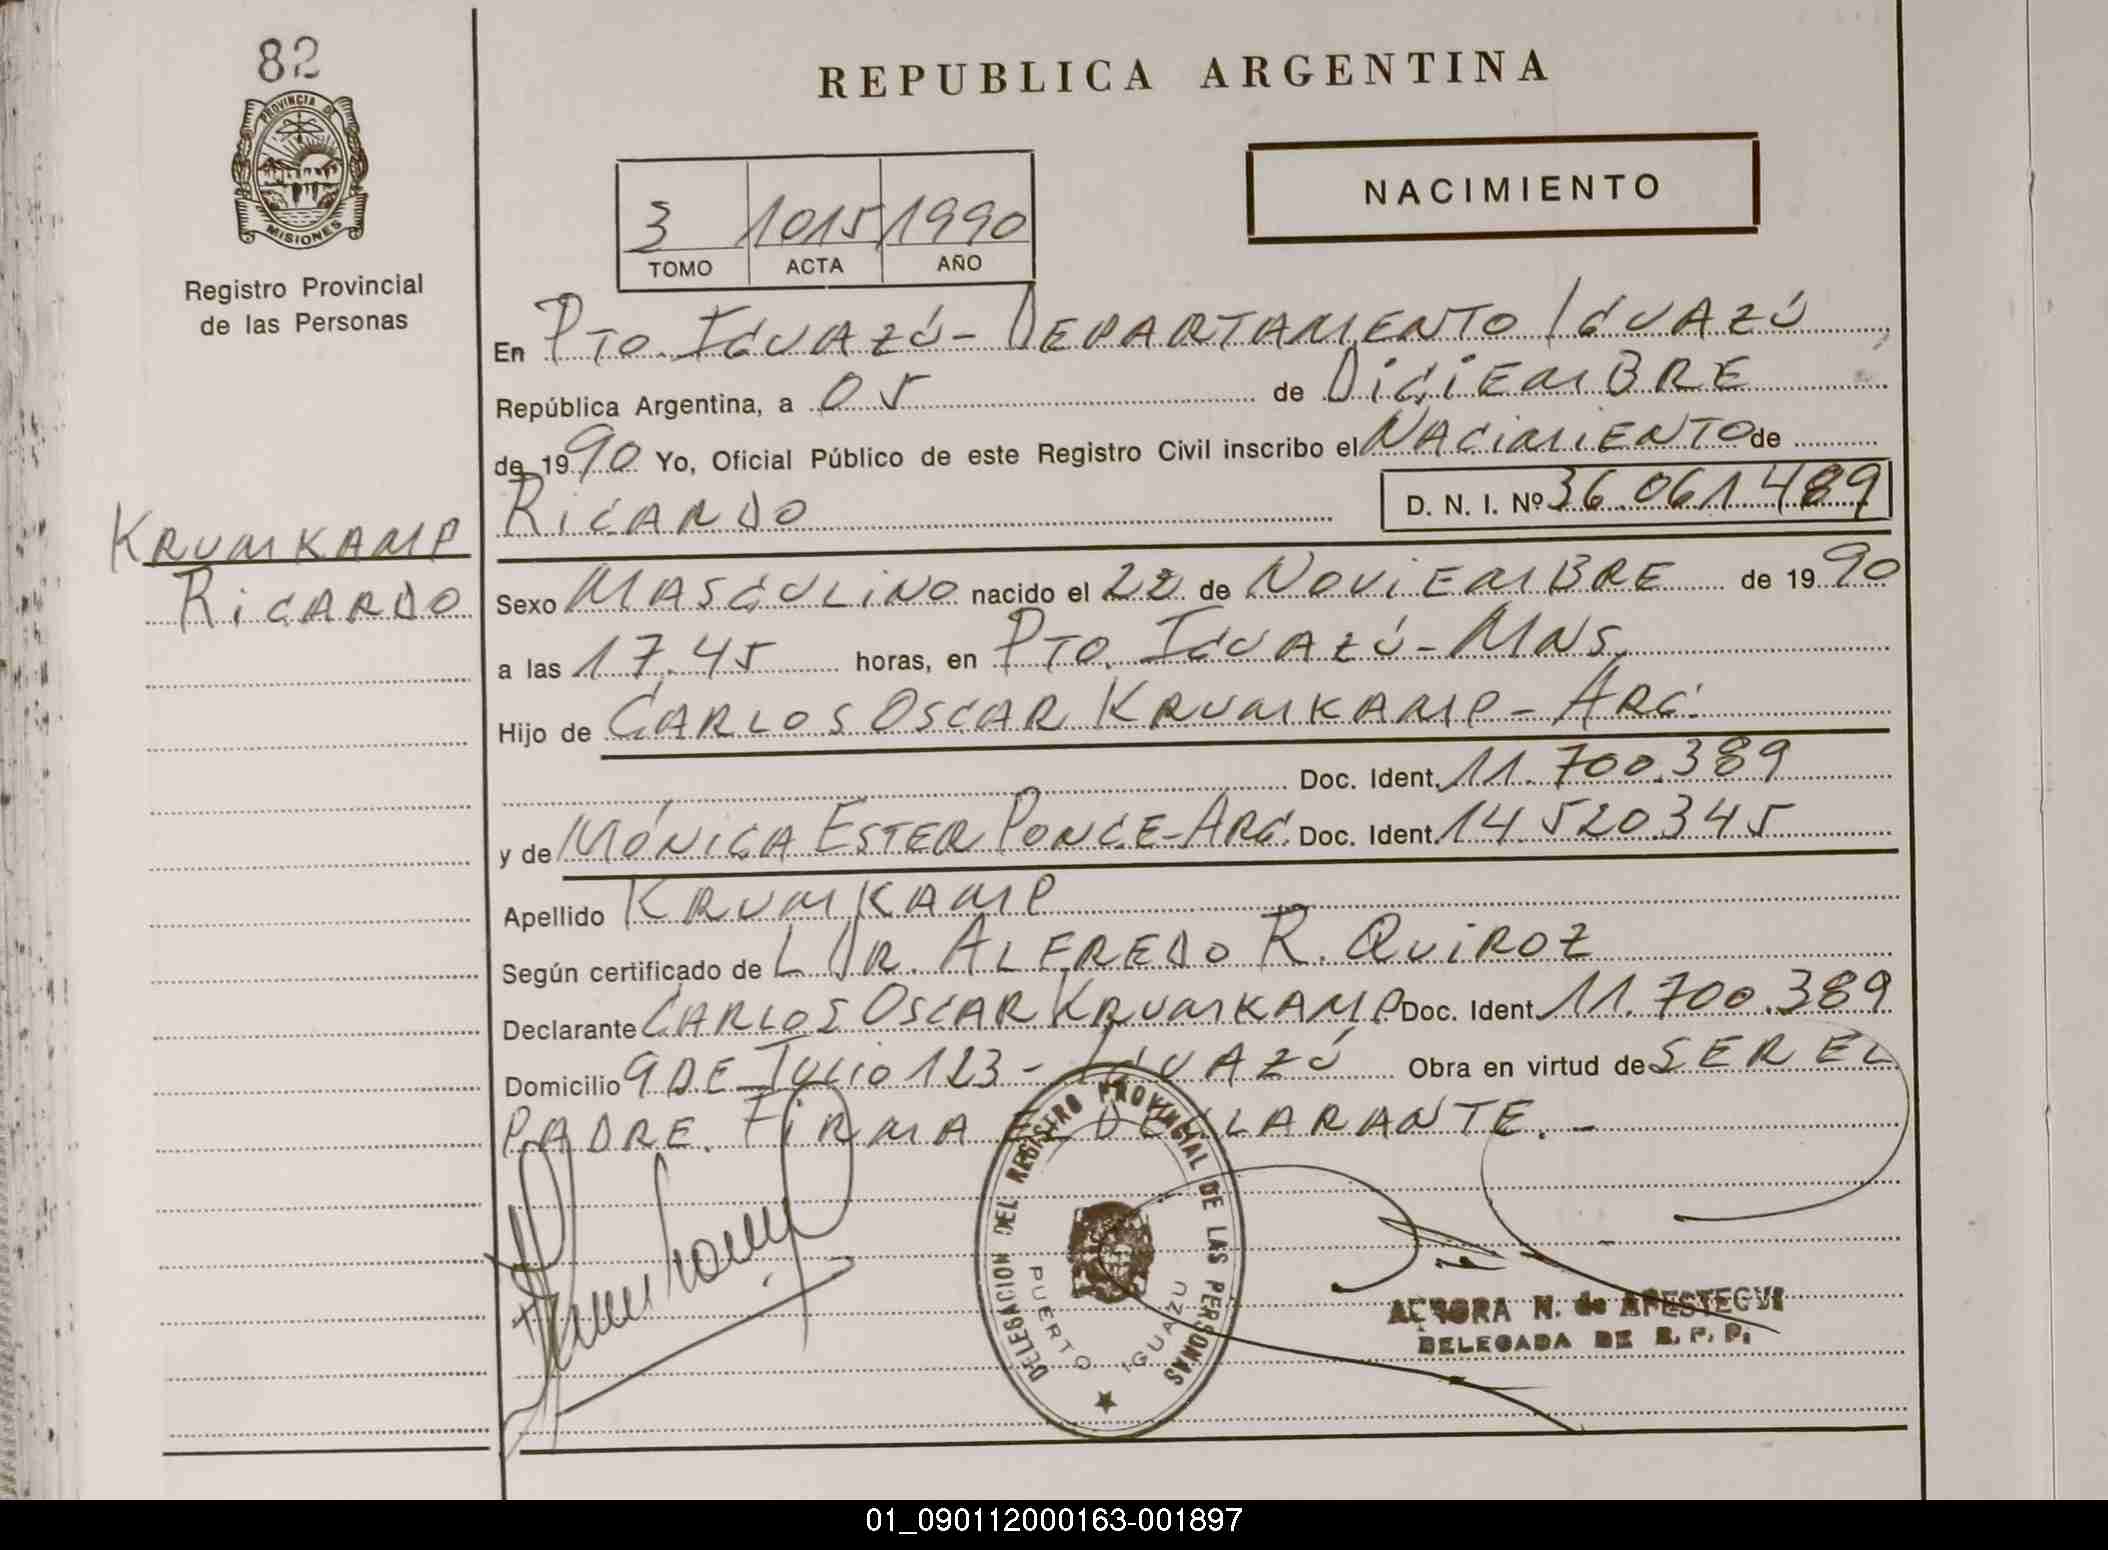 82
PROVINCIA DE
MISIONES
Registro Provincial
de las Personas
KRUMKAMP
RICARDO
REPUBLICA ARGENTINA
NACIMIENTO
3 1015 1990
TOMO ACTA AÑO
En PTO. IGUAZÚ - DEPARTAMENTO IGUAZÚ
República Argentina, a 05 de DICIEMBRE
de 1990 Yo, Oficial Público de este Registro Civil inscribo el NACIMIENTO de
RICARDO D. N. I. Nº 36.061.489
Sexo MASCULINO nacido el 22 de NOVIEMBRE de 1990
a las 17.45 horas, en PTO. IGUAZÚ - MNS.
Hijo de CARLOS OSCAR KRUMKAMP - ARG.
Doc. Ident. 11.700.389
y de MÓNICA ESTER PONCE - ARG. Doc. Ident. 14.520.345
Apellido KRUMKAMP
Según certificado de L DR. ALFREDO R. QUIROZ
Declarante CARLOS OSCAR KRUMKAMP Doc. Ident. 11.700.389
Domicilio 9 DE JULIO 123 - IGUAZÚ Obra en virtud de SER EL
PADRE. FIRMA EL DECLARANTE. -
DELEGACION DEL REGISTRO PROVINCIAL DE LAS PERSONAS
PUERTO IGUAZU
AURORA N. de APESTEGUI
DELEGADA DE R. P. P.
01_090112000163-001897